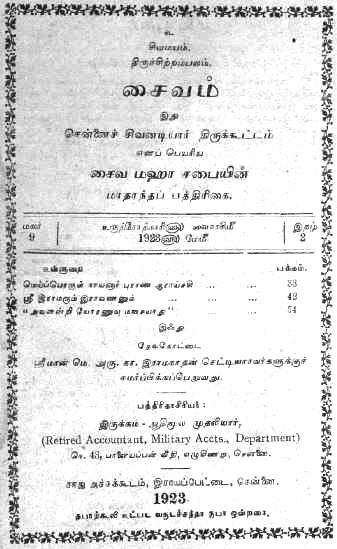 உ
சிவமயம்.
திருச்சிற்றம்பலம்.
சைவம்
இது
சென்னைச் சிவனடியார் திருக்கூட்டம்
எனப் பெயரிய
சைவ மஹா சபையின்
மாதாந்தப் பத்திரிகை.
மலர் 9
உருத்ரோத்காரி௵ வைகாசி௴ 1923௵ மே௴
இதழ் 2
உள்ளுறை பக்கம்.
மெய்ப்பொருள் நாயனார் புராண ஆராய்ச்சி ... ... 33
ஸ்ரீ இராமரும் இராவணனும் ... ... 43
"அவனன்றி யோரணுவு மசையாது" ... ... 54
இஃது
தேவகோட்டை
ஸ்ரீமான் மெ. அரு. கா. இராமநாதன் செட்டியாரவர்களுக்குச்
சமர்ப்பிக்கப்பெறுவது.
பத்திராசிரியர்:
இருக்கம் - ஆதிமூல முதலியார்,
(Retired Accountant, Military Accts., Department)
நெ. 43, பாளையப்பன் வீதி, ஏழுகிணறு, சென்னை.
சாது அச்சுக்கூடம், இராயப்பேட்டை, சென்னை.
1923
தபாற்கூலி உட்பட வருடச்சந்தா ரூபா ஒன்றரை.